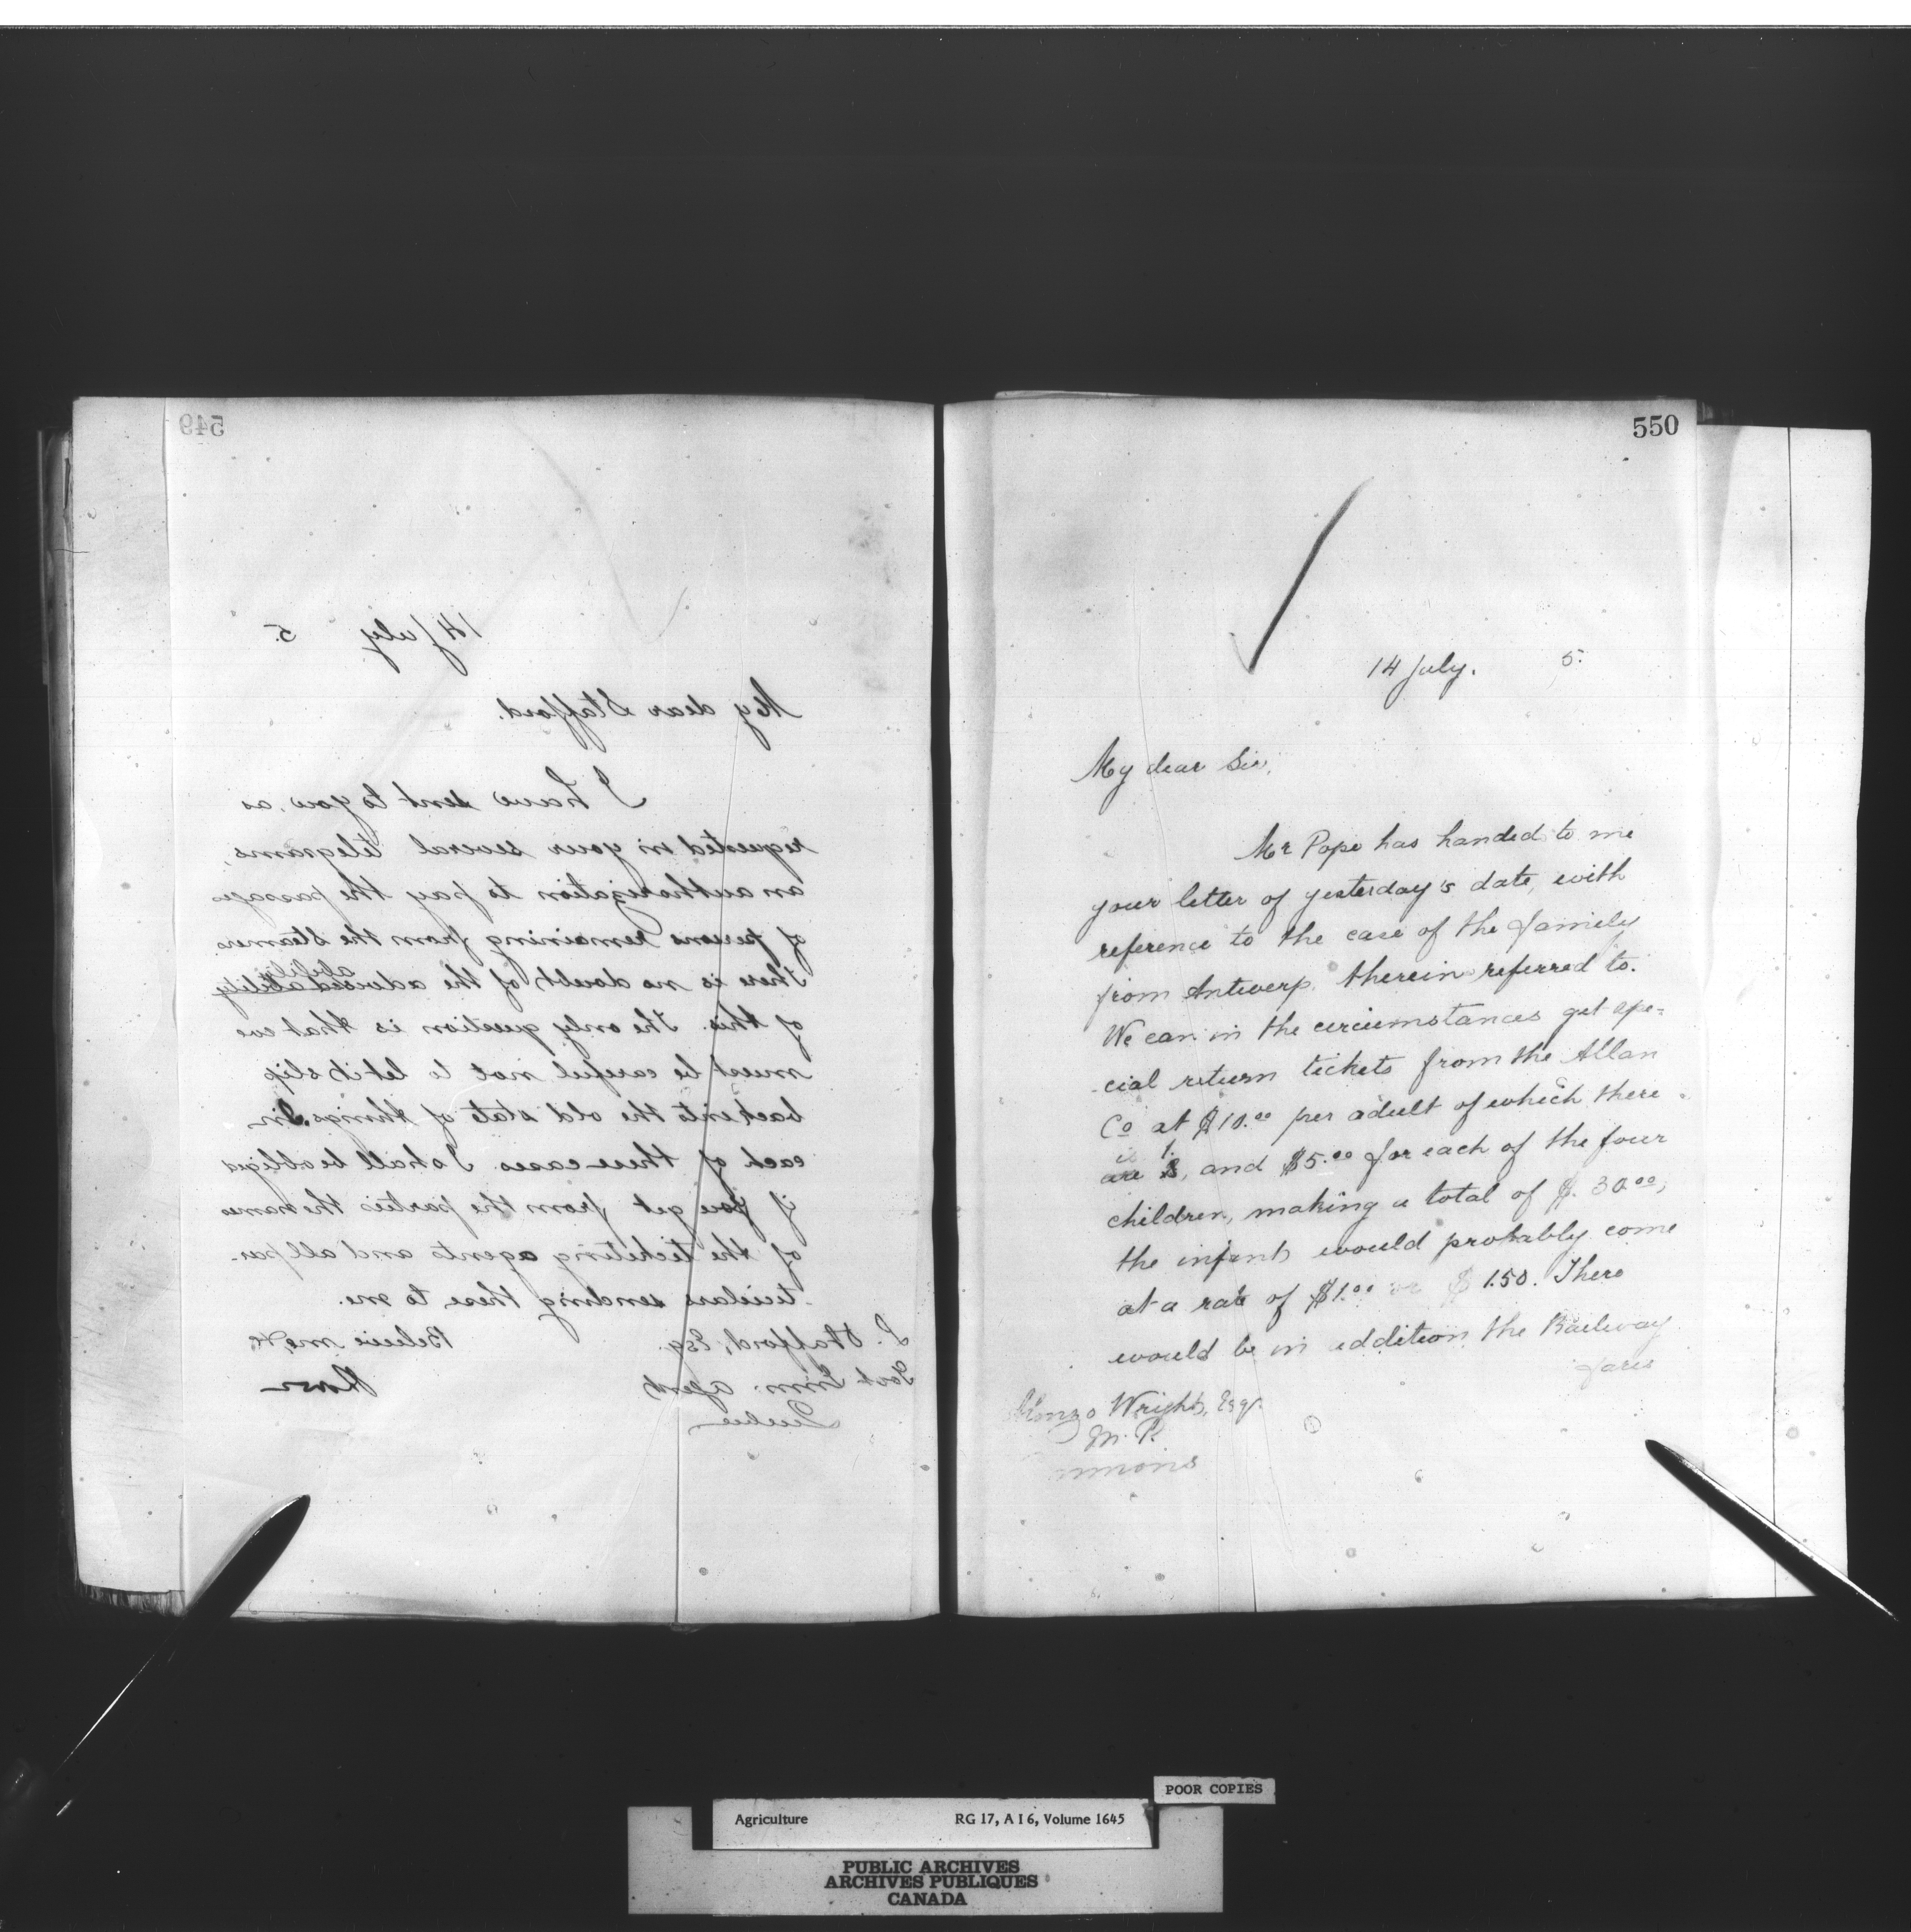 549
14 July 5.
My dear Stafford.
I have sent to you, as
requested in your several telegrams,
an authorization to pay the passages
of persons remaining from the Steamers.
There is no doubt of the advised ability
ability
of this. The only question is that we
must be careful not to let it slip
back into the old state of things. In
each of these cases I shall be obliged
if you get from the parties the names
of the ticketing agents and all par-
ticulars sending these to me.
Believe me &c
P. Stafford, Esq.
Govt Imm. agent
Quebec
550
14 July. 5.
My dear Sir,
Mr Pope has handed to me
your letter of yesterday's date, with
reference to the case of the family
from Antwerp, therein referred to.
We can in the circumstances get spe=
cial return tickets from the Allan
Co at $10.00 per adult of which there
is 1.
are 3, and $5.00 for each of the four
children, making a total of $. 30.00,
the infants would probably come
at a rate of $1.00 or $1.50. There
would be in addition the Railway
fares
Alonzo Wright, Esq.
M.P.
mmons
POOR COPIES
Agriculture RG 17, A I 6, Volume 1645
PUBLIC ARCHIVES
ARCHIVES PUBLIQUES
CANADA